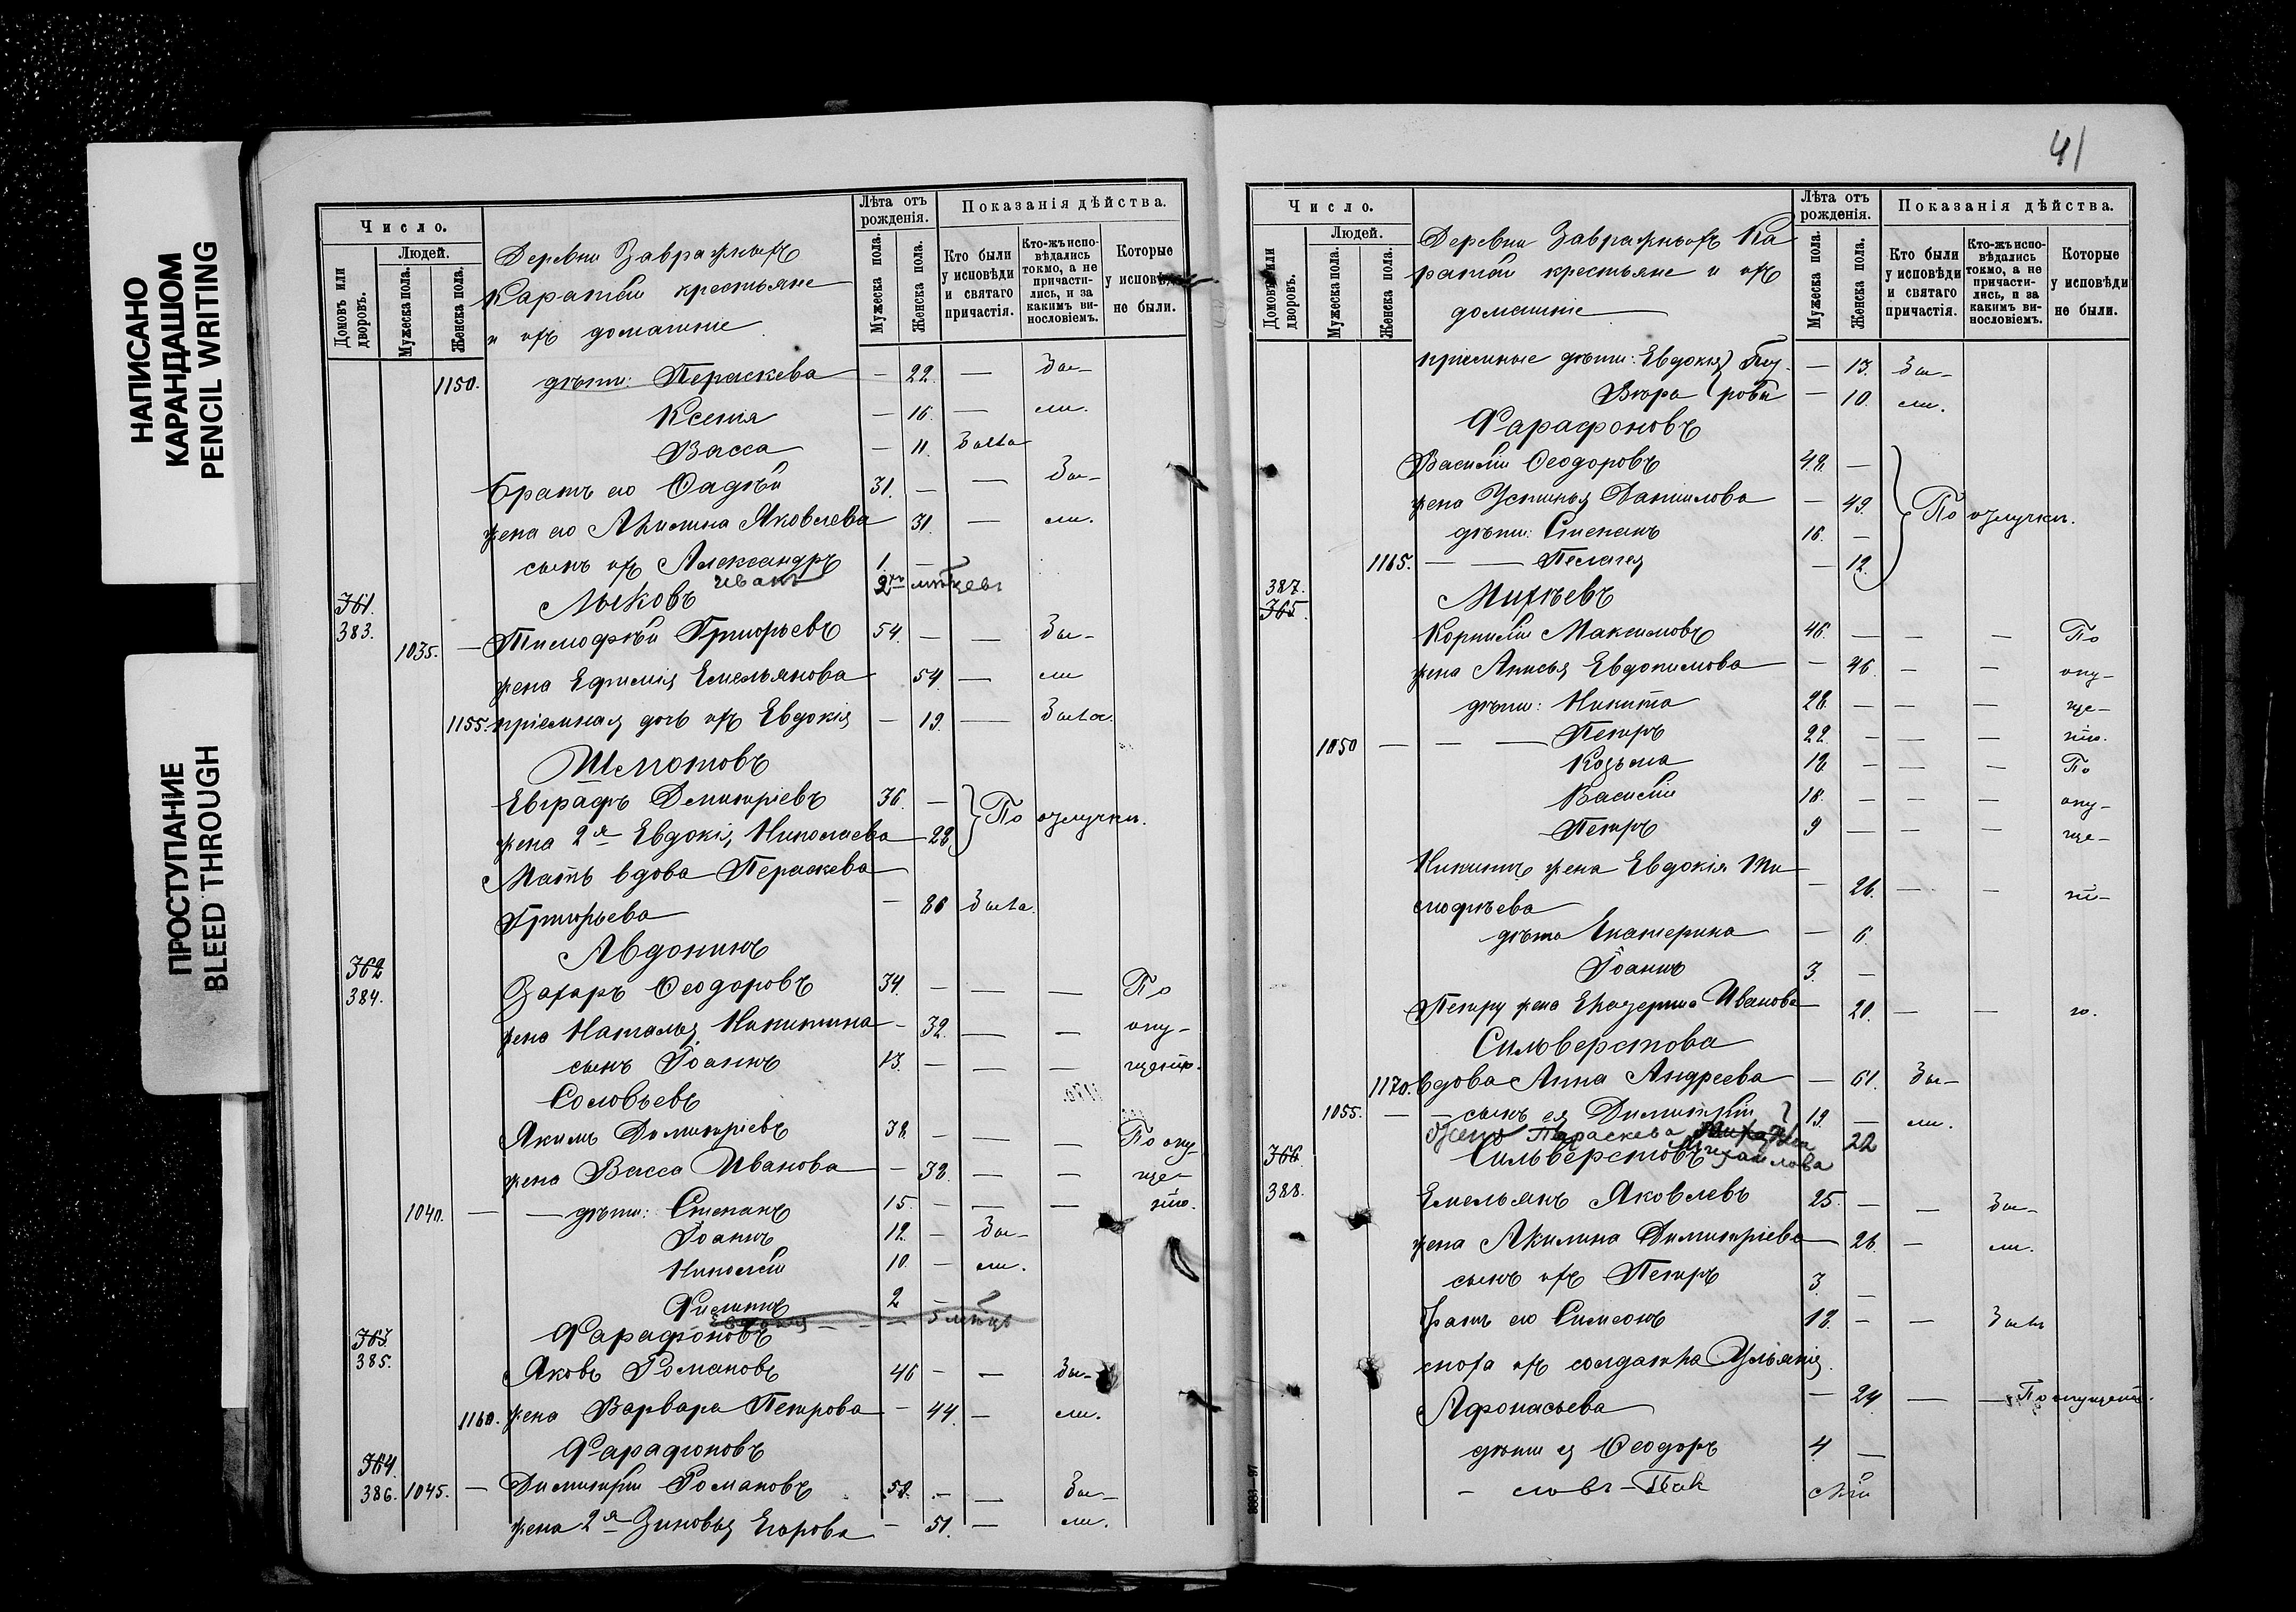 НАПИСАНО
КАРАНДАШОМ
PENCIL WRITING
ПРОСТУПАНИЕ
BLEED THROUGH
Число.
Домовъ или дворовъ.
Людей.
Мужеска пола.
Женска пола.
Деревни Завражныхъ
Каратай крестьяне
и ихъ домашніе
Лѣта отъ рожденія.
Мужеска пола.
Женска пола.
Показанія дѣйства.
Кто были у исповѣди и святаго причастія.
Кто-жъ исповѣдались токмо, а не причастились, и за какимъ винословіемъ.
Которые у исповѣди не были.
1150. дѣти: Пераскева — 22. — Бы-
Ксенія — 16. — ли.
Васса — 11. Была
Братъ его Фадѣй 31. — — Бы-
жена его Акилина Яковлева 31 — ли.
сынъ ихъ Александръ 1. —
Иванъ 2
361. Лыковъ
383.
1035. — Тимофѣй Григорьевъ 54. — — Бы-
жена Ефимія Емельянова 54. — ли
1155. пріемная дочь ихъ Евдокія — 19. — Была.
Шмотовъ
Евграфъ Димитріевъ 36. — По отлучки.
жена 2я Евдокія Николаева 28.
Мать вдова Пераскева
Григорьева — 86 Была.
Авдонинъ
362
384. Захаръ Ѳеодоровъ 34. — — — По
жена Наталья Никитина — 32. — — опу-
сынъ Іоаннъ 13. — — — щенію.
Соловьевъ
Якимъ Димитріевъ 38. — — — По опу-
жена Васса Иванова — 38. — — ще-
1040. — — дѣти: Степанъ 15. — — — нію.
Іоаннъ 12. — Бы-
Николай 10. — ли.
Филиппъ 2 —
Евдокія — — 5 мѣсяц
363. Фарафоновъ
385.
Яковъ Романовъ 46 — — Бы-
1160. жена Варвара Петрова — 44. — ли.
Фарафоновъ
364.
386. 1045. — Димитрій Романовъ 58. — — Бы-
жена 2я Зиновья Егорова — 51. — ли.
41
Число.
Домовъ или дворовъ.
Людей.
Мужеска пола.
Женска пола.
Деревни Завражныхъ Ка
ратай крестьяне и ихъ
домашніе
Лѣта отъ рожденія.
Мужеска пола.
Женска пола.
Показанія дѣйства.
Кто были у исповѣди и святаго причастія.
Кто-жъ исповѣдались токмо, а не причастились, и за какимъ винословіемъ.
Которые у исповѣди не были.
пріемные дѣти: Евдокія — 13. Бы-
Вѣра — 10. ли.
Фарафоновъ
Василій Ѳеодоровъ 48. —
жена Устинья Даниилова — 49. По отлучки.
дѣти: Степанъ 16. —
1165. — — Пелагея — 12.
387.
365. Михѣевъ
Корнилій Максимовъ 46. — — — По
жена Анисья Евдокимова — 46 — — опу-
дѣти: Никита 28. — — — ще-
1050 — — — Петръ 22. — — — нію.
Козьма 18. — — — По
Василій 18. — — — опу-
Петръ 9 — — — ще-
Никиты жена Евдокія Ти
мофѣева — 26. — — ні-
дѣти Екатерина — 6.
Іоаннъ 3. —
Петру жена Екатерина Иванова 20. — — ю.
Сильверстова
1170. вдова Анна Андреева — 61. Бы-
1055. — — сынъ ея Димитрій 19. — ли.
жена Параскева Михайлова 22
366 Сильверстовъ
388.
Емельянъ Яковлевъ 25. — — Бы-
жена Акилина Димитріева 26. — ли.
сынъ ихъ Петръ 3. —
братъ его Симеонъ 18. — — Былъ
сноха ихъ солдатка Ульянія
Афонасьева — 24. — — По опущенію.
дѣти ея Ѳеодоръ 4. —
8683—97